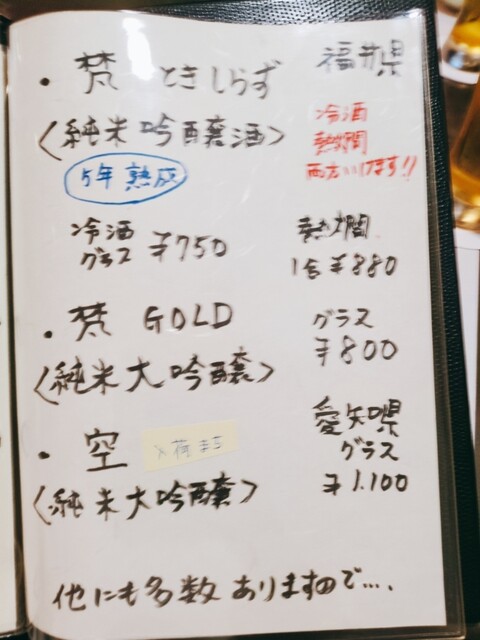 ・梵 ときしらず 福井県
〈純米吟醸酒〉
冷酒
熱燗
両方いけます!!
5年熟成
冷酒
グラス ¥750
熱燗
1合 ¥880
・梵 GOLD グラス
¥800
〈純米大吟醸〉
・空 入荷まち 愛知県
グラス
¥1.100
〈純米大吟醸〉
他にも多数ありますので....